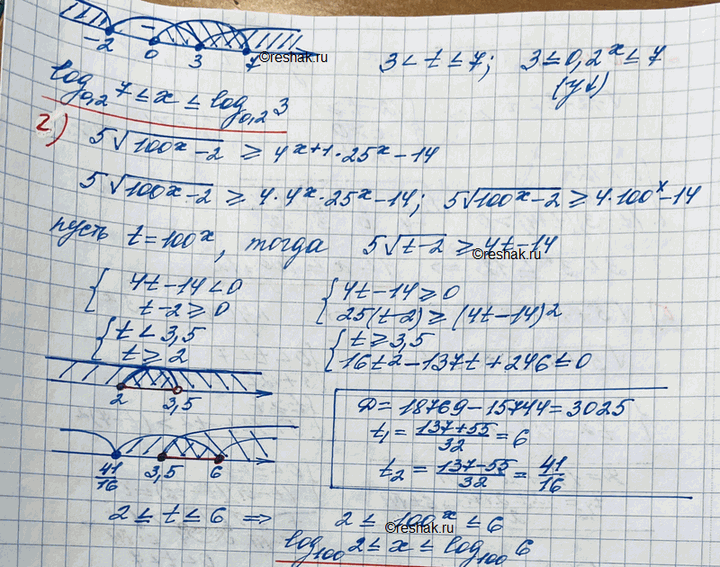 -2 0 3 7
©reshak.ru
3 < t ≤ 7; 3 ≤ 0,2^x ≤ 7
(y↓)
log_{0,2} 7 ≤ x ≤ log_{0,2} 3
2) 5√(100^x - 2) ≥ 4^{x+1} · 25^x - 14
5√(100^x - 2) ≥ 4 · 4^x · 25^x - 14; 5√(100^x - 2) ≥ 4 · 100^x - 14
пусть t = 100^x, тогда 5√(t-2) ≥ 4t - 14
©reshak.ru
{ 4t - 14 < 0
t - 2 ≥ 0
{ t < 3,5
t ≥ 2
2 3,5
{ 4t - 14 ≥ 0
25(t-2) ≥ (4t-14)^2
{ t ≥ 3,5
16t^2 - 137t + 246 ≤ 0
D = 18769 - 15744 = 3025
t_1 = (137+55)/32 = 6
t_2 = (137-55)/32 = 41/16
41/16 3,5 6
2 ≤ t ≤ 6 ⇒ 2 ≤ 100^x ≤ 6
©reshak.ru
log_{100} 2 ≤ x ≤ log_{100} 6